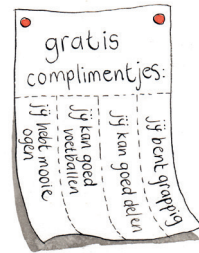 gratis
complimentjes:
jij hebt mooie
ogen
jij kan goed
voetballen
jij kan goed delen
jij bent grappig